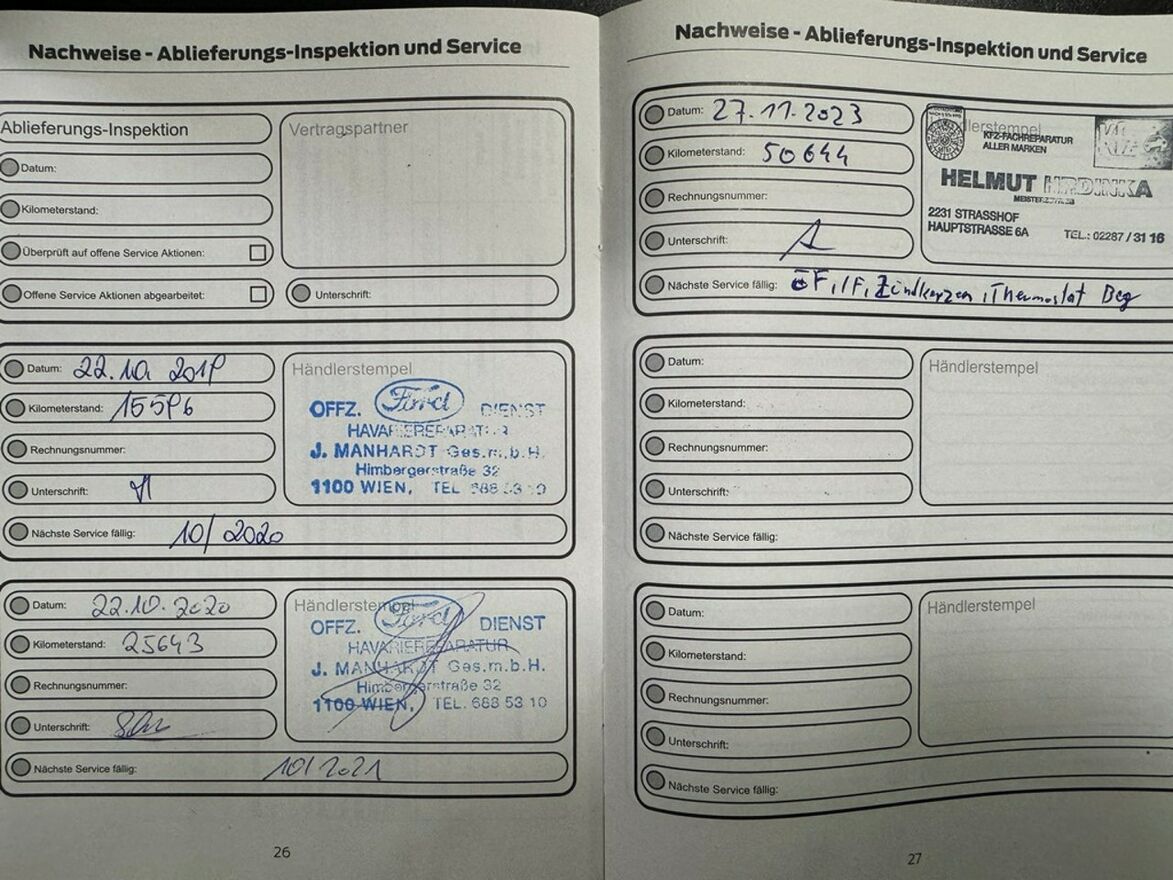 Nachweise - Ablieferungs-Inspektion und Service
Ablieferungs-Inspektion
Vertragspartner
Datum:
Kilometerstand:
Überprüft auf offene Service Aktionen:
Offene Service Aktionen abgearbeitet:
Unterschrift:
Datum: 22.10. 2019
Kilometerstand: 15596
Rechnungsnummer:
Unterschrift:
Nächste Service fällig: 10/2020
Händlerstempel
OFFZ. Ford DIENST
HAVARIEREPARATUR
J. MANHARDT Ges.m.b.H.
Himbergerstraße 32
1100 WIEN, TEL 688 53 10
Datum: 22.10.2020
Kilometerstand: 25643
Rechnungsnummer:
Unterschrift:
Nächste Service fällig: 10/2021
Händlerstempel
OFFZ. Ford DIENST
HAVARIEREPARATUR
J. MANHARDT Ges.m.b.H.
Himbergerstraße 32
1100 WIEN, TEL. 688 53 10
26
Nachweise - Ablieferungs-Inspektion und Service
Datum: 27.11.2023
Kilometerstand: 50644
Rechnungsnummer:
Unterschrift:
Nächste Service fällig: ÖF, IF, Zündkerzen, Thermostat Beg
KFZ-FACHREPARATUR
ALLER MARKEN
HELMUT HRDINKA
MEISTERBETRIEB
2231 STRASSHOF
HAUPTSTRASSE 6A TEL.: 02287 / 31 16
Datum:
Kilometerstand:
Rechnungsnummer:
Unterschrift:
Nächste Service fällig:
Händlerstempel
Datum:
Kilometerstand:
Rechnungsnummer:
Unterschrift:
Nächste Service fällig:
Händlerstempel
27